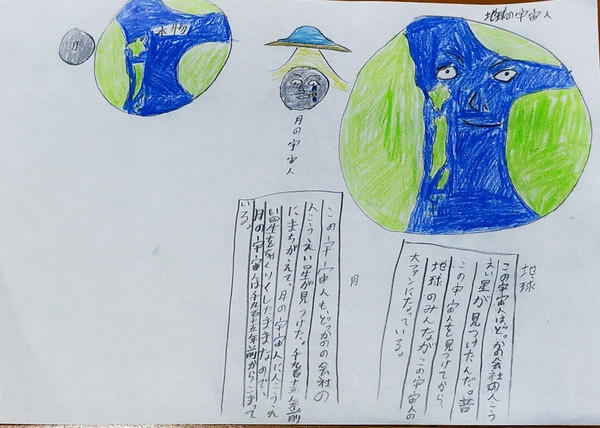 地球の宇宙人
地球
この宇宙人は、どっかの会社の人こう
えい星が見つけたんだ。昔
この宇宙人を見つけてから、
地球のみんながこの宇宙人の
大ファンになっている。
月の宇宙人
月
この宇宙人も、どっかの会社の
人こうえい星が見つけた。千九百十五年前
にまちがえて、月の宇宙人に人こうえ
い星を したままなので、
月の宇宙人は千九百十五年前からこまって
いる。
本物
月